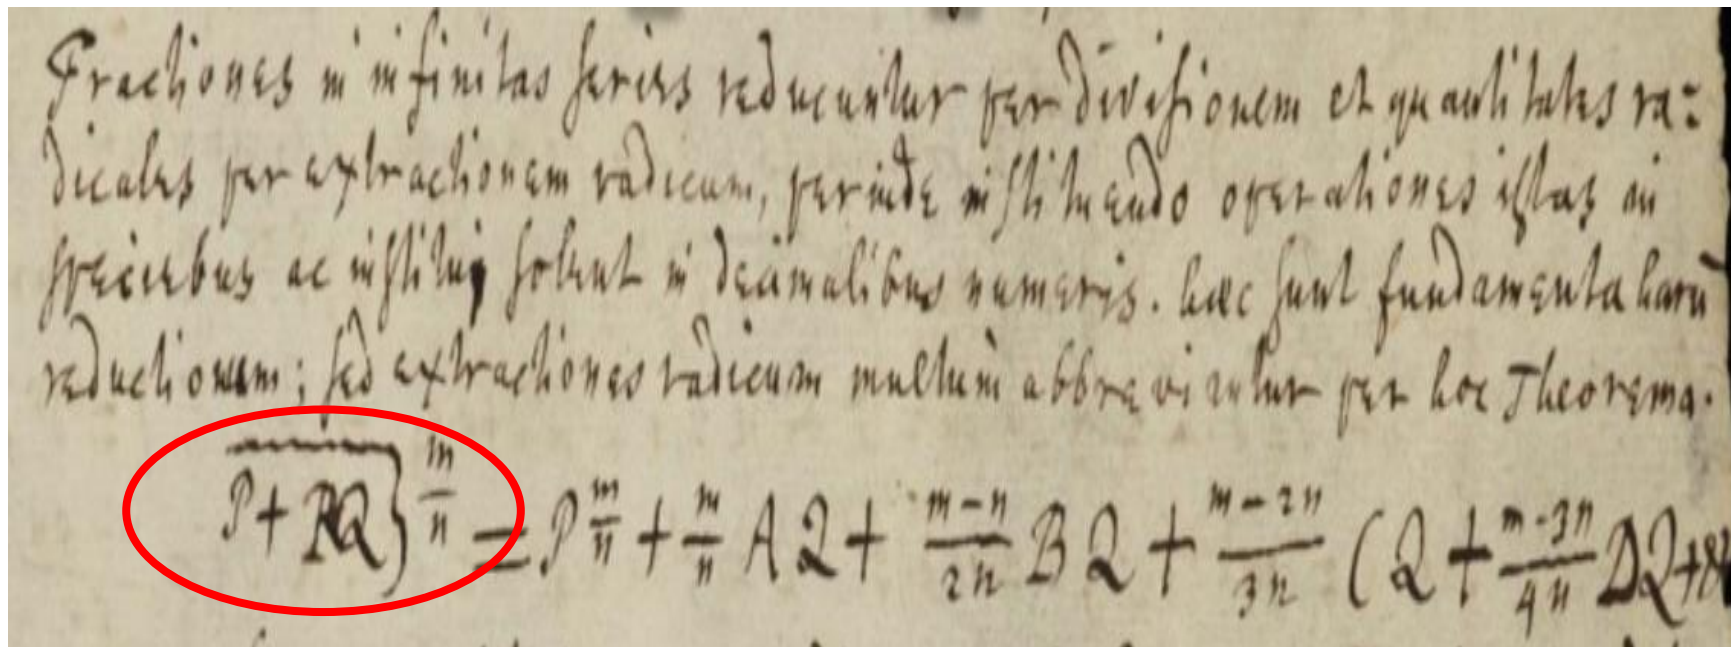 Fractiones in infinitas series reducuntur per divisionem et quantitates ra=
dicales per extractionem radicum, perinde instituendo operationes istas in
speciebus ac institui solent in decimalibus numeris. haec sunt fundamenta harū
reductionum; sed extractiones radicum multum abbreviantur per hoc Theorema.
P + PQ} m/n = P m/n + m/n A Q + m-n/2n B Q + m-2n/3n C Q + m-3n/4n D Q + &